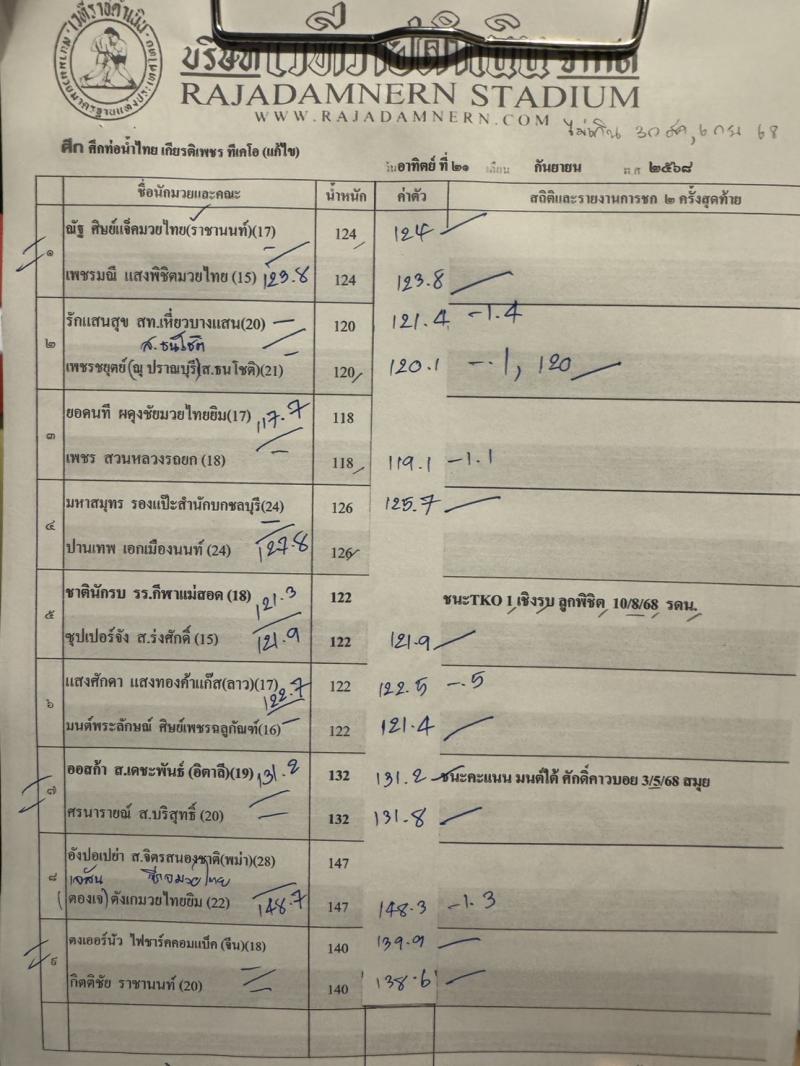 บริษัท เวทีราชดำเนิน จำกัด
RAJADAMNERN STADIUM
WWW.RAJADAMNERN.COM
ไม่เกิน 30
68
ศึก ศึกท่อน้ำไทย เกียรติเพชร ทีเคโอ (แก้ไข)
วันอาทิตย์ ที่ ๒๑ เดือน กันยายน พ.ศ ๒๕๖๘
ชื่อนักมวยและคณะ น้ำหนัก ค่าตัว สถิติและรายงานการชก ๒ ครั้งสุดท้าย
ณัฐ ศิษย์แจ็คมวยไทย(ราชานนท์)(17) 124 124
๑
เพชรมณี แสงพิชิตมวยไทย (15) 123.8 124 123.8
รักแสนสุข สท.เหี่ยวบางแสน(20) 120 121.4 -1.4
๒ ส.ธนโชติ
เพชรชยุตย์(ณุ ปราณบุรี)ส.ธนโชติ)(21) 120 120.1 -.1, 120
ยอดนที ผดุงชัยมวยไทยยิม(17) 117.7 118
๓
เพชร สวนหลวงรถยก (18) 118 119.1 -1.1
มหาสมุทร รองแป๊ะสำนักบกชลบุรี(24) 126 125.7
๔
ปานเทพ เอกเมืองนนท์ (24) 127.8 126
ชาตินักรบ รร.กีฬาแม่สอด (18) 121.3 122 ชนะTKO 1 เชิงรบ ลูกพิชิต 10/8/68 รดน.
๕
ซุปเปอร์จัง ส.ร่งศักดิ์ (15) 121.9 122 121.9
แสงศักดา แสงทองค้าแก๊ส(ลาว)(17) 122.7 122 122.5 -.5
๖
มนต์พระลักษณ์ ศิษย์เพชรฉลูกัณฑ์(16) 122 121.4
ออสก้า ส.เดชะพันธ์ (อิตาลี)(19) 131.2 132 131.2 ชนะคะแนน มนต์ใต้ ศักดิ์คาวบอย 3/5/68 สมุย
๗
ศรนารายณ์ ส.บริสุทธิ์ (20) 132 131.8
อังปอเปย่า ส.จิตรสนองชาติ(พม่า)(28) 147
๘ เจสัน ซีเจมวยไทย
(ตองเจ) ดังเกมวยไทยยิม (22) 148.7 147 148.3 -1.3
ตงเออร์นัว ไฟชาร์คคอมแบ็ค (จีน)(18) 140 139.9
๙
กิตติชัย ราชานนท์ (20) 140 138.6